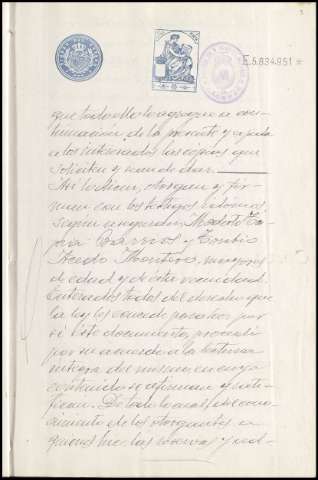 E.5.834.851
que todo ello lo agregue a con-
tinuación de la presente y expida
a los interesados las copias que
soliciten y manden dar.
Así lo dicen, otorgan y fir-
man con los testigos idóneos,
según aseguran, Modesto
Barrios y Toribio
Acedo Montero, mayores
de edad y de esta vecindad.
Enterados todos del derecho que
la ley les concede para leer por
sí este documento, procedí
por su acuerdo a la lectura
íntegra del mismo, en cuyo
contenido se afirman y rati-
fican. De todo lo cual, del cono-
cimiento de los otorgantes, a
quienes hice las reservas y